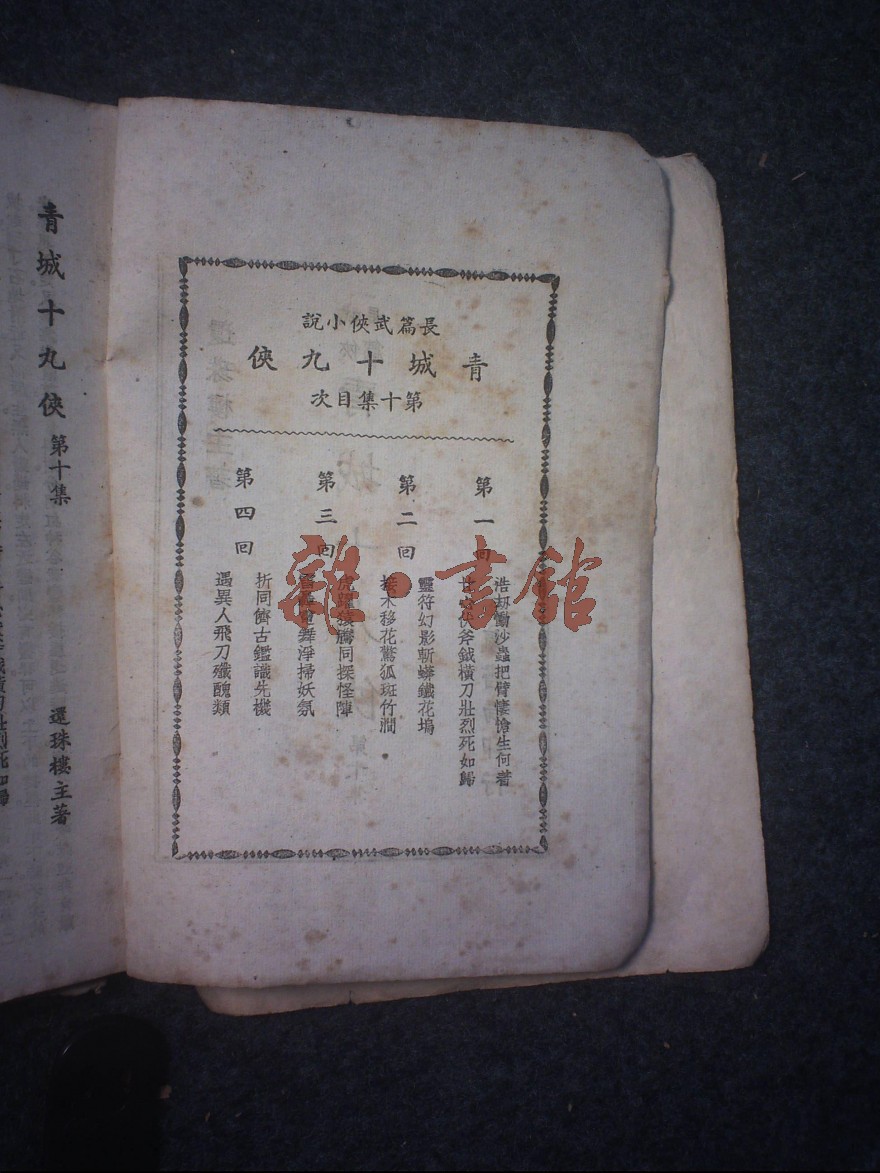 長篇武俠小說
青城十九俠
第十集目次
第一回
浩劫慟沙蟲把臂悽愴生何著
甘心伏斧鉞橫刀壯烈死如歸
第二回
靈符幻影斬蟒鐵花塢
接木移花驚狐斑竹澗
第三回
虎躍猿騰同探怪陣
雷轟電舞淨掃妖氛
第四回
折同儕古鑑識先機
遇異人飛刀殲醜類
青城十九俠 第十集
還珠樓主著
橫刀壯烈死如歸
雜·書館